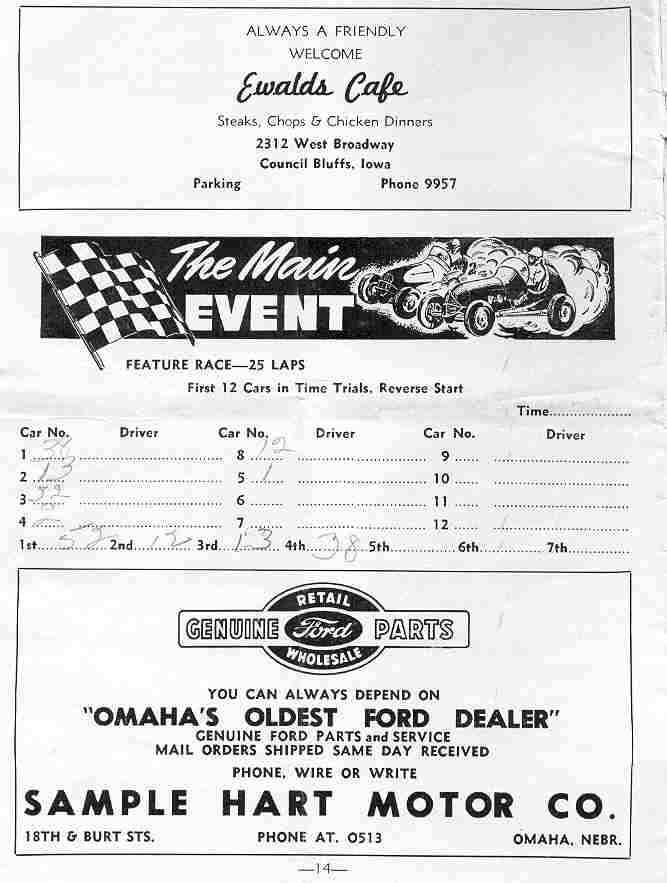 ALWAYS A FRIENDLY
WELCOME
Ewalds Cafe
Steaks, Chops & Chicken Dinners
2312 West Broadway
Council Bluffs, Iowa
Parking Phone 9957
The Main
EVENT
FEATURE RACE—25 LAPS
First 12 Cars in Time Trials, Reverse Start
Time....................
Car No. Driver Car No. Driver Car No. Driver
1 38 8 12 9
2 13 5 1 10
3 52 6 11
4 7 12
1st 52 2nd 12 3rd 13 4th 38 5th 6th 7th
RETAIL
GENUINE Ford PARTS
WHOLESALE
YOU CAN ALWAYS DEPEND ON
"OMAHA'S OLDEST FORD DEALER"
GENUINE FORD PARTS and SERVICE
MAIL ORDERS SHIPPED SAME DAY RECEIVED
PHONE, WIRE OR WRITE
SAMPLE HART MOTOR CO.
18TH & BURT STS. PHONE AT. 0513 OMAHA, NEBR.
—14—